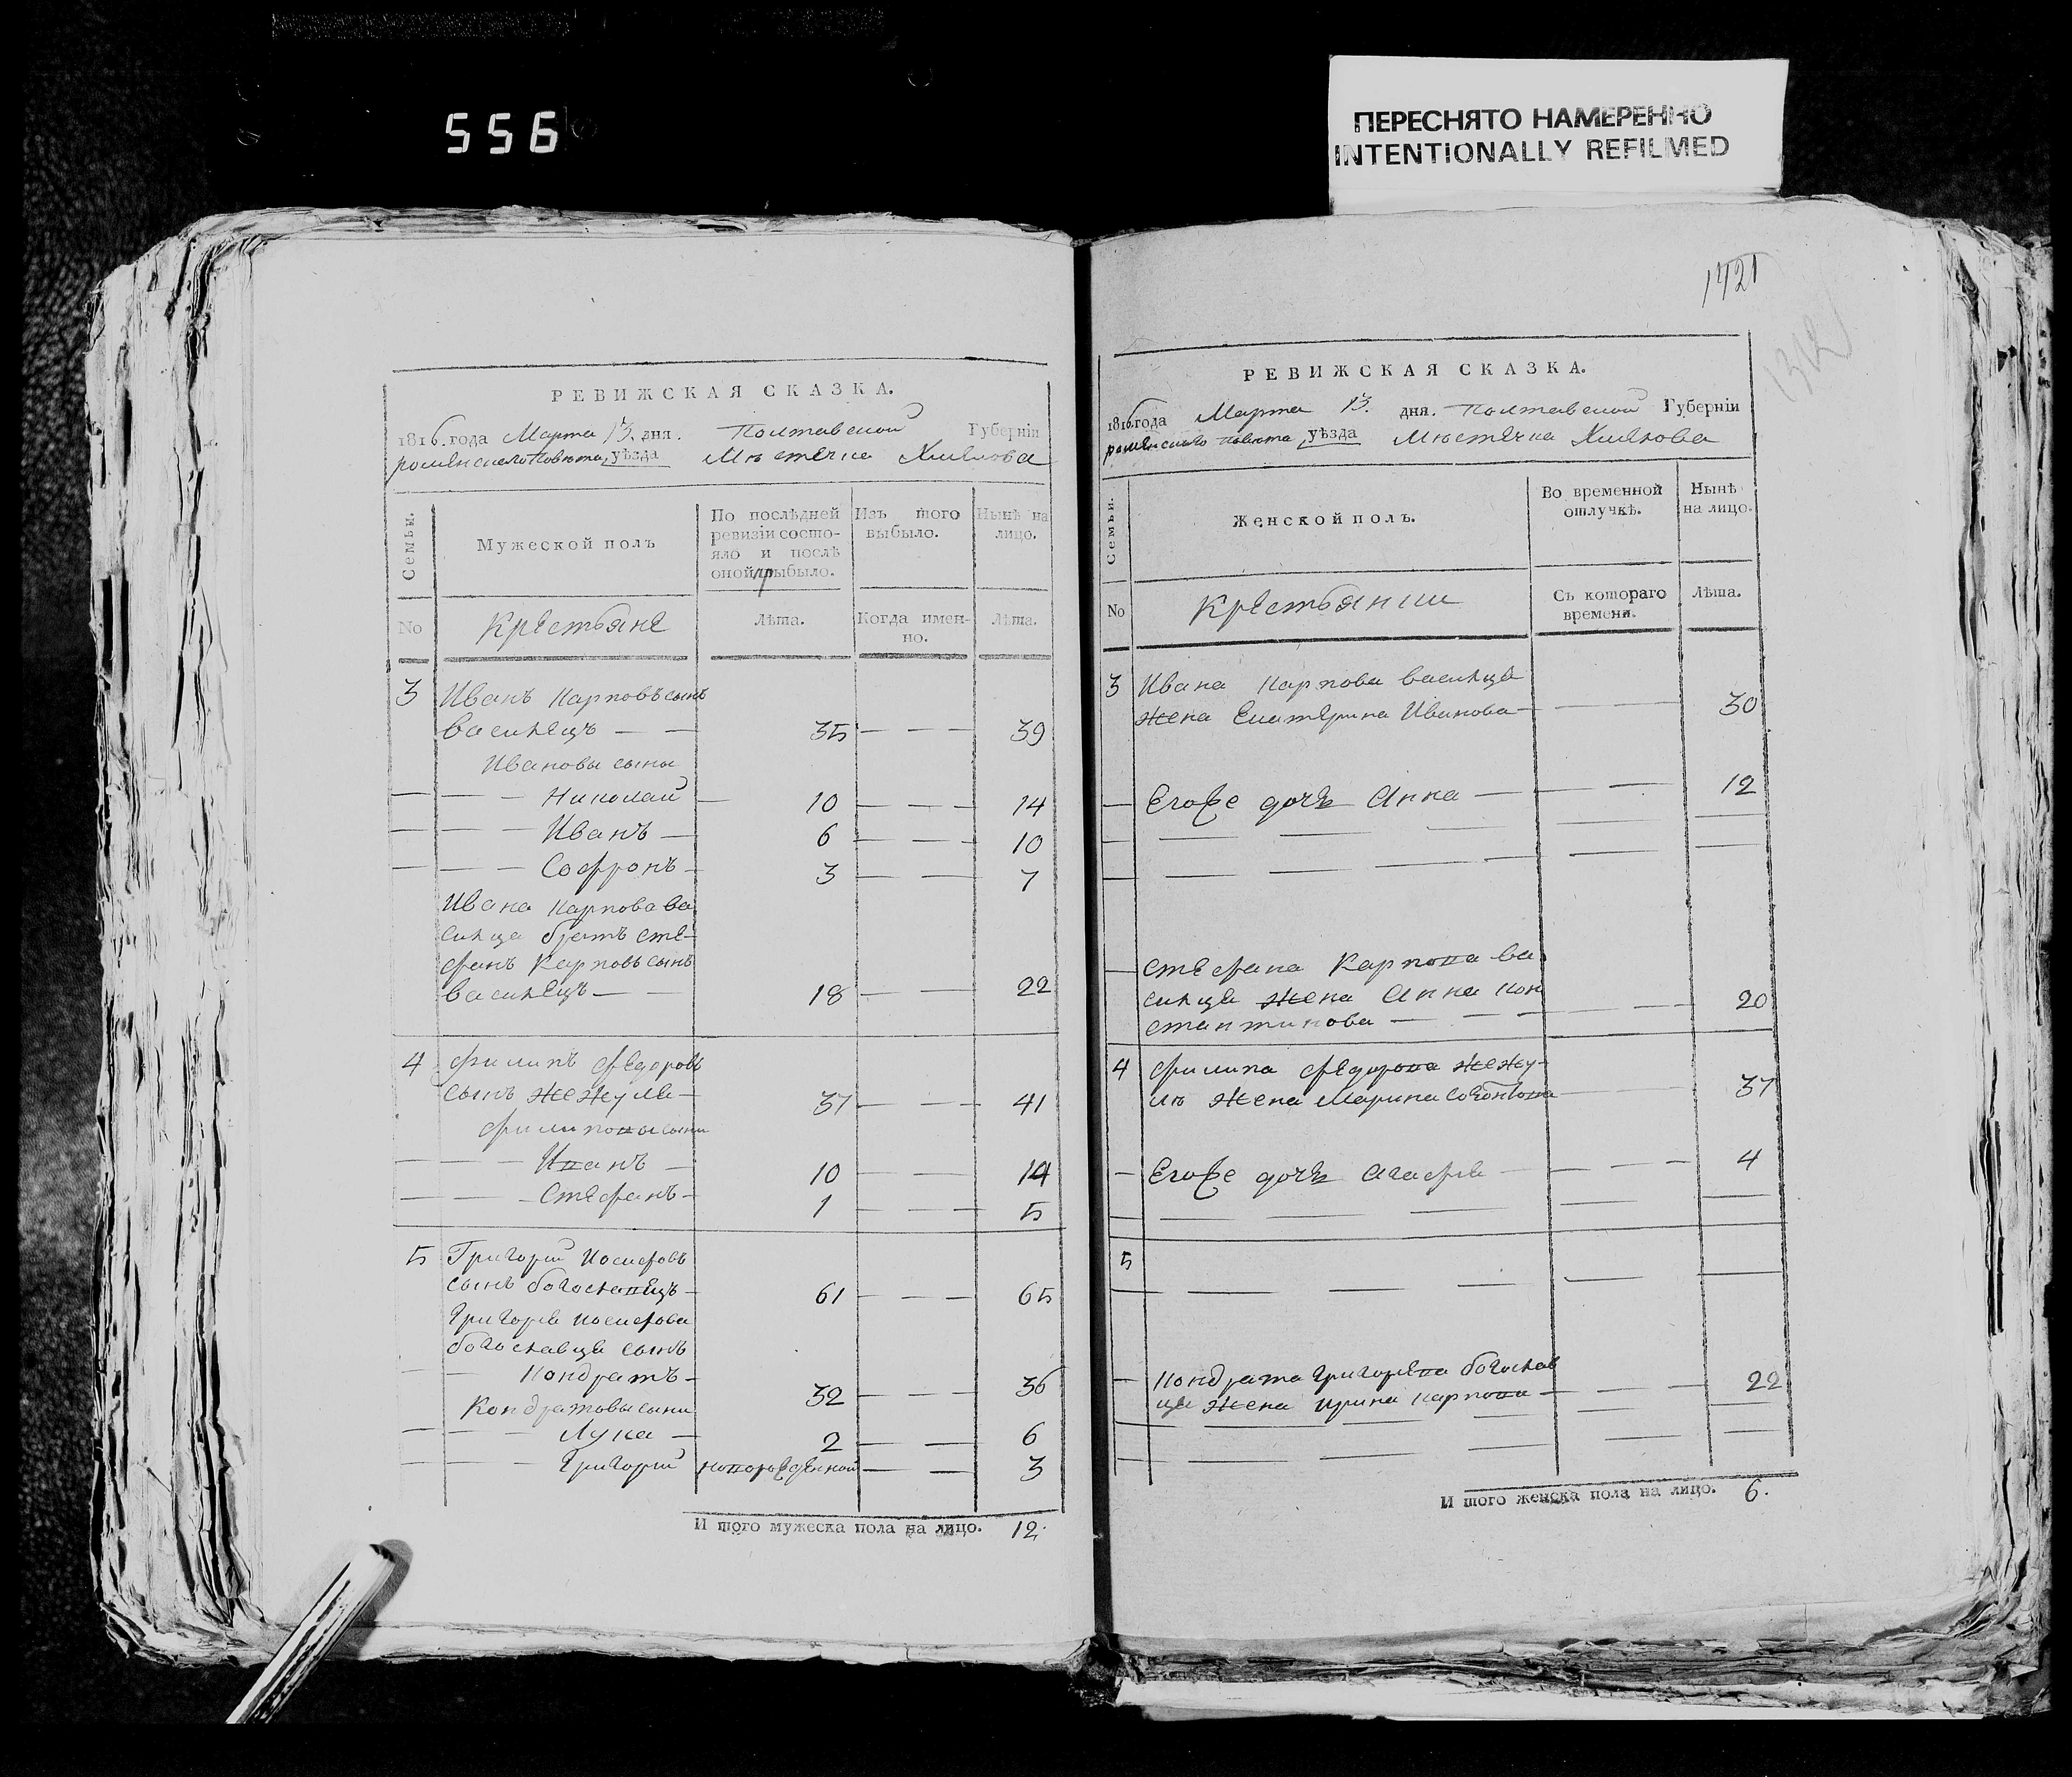 556
ПЕРЕСНЯТО НАМЕРЕННО
INTENTIONALLY REFILMED
РЕВИЖСКАЯ СКАЗКА.
1816. года Марта 13. дня. Полтавской Губернїи
роменскаго повѣта, уѣзда Мѣстечка Хмелова
Семьи.
Мужеской полъ
По послѣдней
ревизїи состо-
яло и послѣ
оной прибыло.
Изъ того
выбыло.
Нынѣ на
лицо.
No
Крестьяне
Лѣта.
Когда имен-
но.
Лѣта.
3 Иванъ Карповъ сынъ
Василецъ — — 35 — — — 39
Ивановы сыны
— — — Николай — 10 — — — 14
— — — Иванъ — 6 — — — 10
— — — Софронъ — 3 — — 7
Ивана Карпова Ва
силца братъ Сте-
фанъ Карповъ сынъ
Василецъ — — 18 — — 22
4 Филипъ Федоровъ
сынъ Жежуля — 37 — — — 41
Филиповы сыны
— — — Иванъ — 10 — — 14
— — — Стефанъ — 1 — — — 5
5 Григорий Иосифовъ
сынъ Богославецъ — 61 — — — 65
Григорія Иосифова
Богославца сынъ
— — Кондратъ — 32 — — — 36
Кондратовы сыны
— — — Лука — 2 — — 6
— — — Григорий новорожденной — — 3
И того мужеска пола на лицо. 12.
1421
1312
РЕВИЖСКАЯ СКАЗКА.
1816 года Марта 13. дня. Полтавской Губернїи
роменскаго повѣта, уѣзда Мѣстечка Хмелова
Семьи.
Женской полъ.
Во временной
отлучкѣ.
Нынѣ
на лицо.
No
Крестьянки
Съ котораго
времени.
Лѣта.
3 Ивана Карпова Василца
жена Екатерина Иванова — — — 30
— Егоже дочь Анна — — — — 12
— Стефана Карпова Ва
силца жена Анна Кон
стантинова — — — — — 20
4 Филипа Федорова Жежу-
лѣ жена Марина — — — 37
— Егоже дочь Агафія — — — — 4
5
— Кондрата Григорева Богослав
ца жена Ирина Карпова — — — — 22
И того женска пола на лицо. 6.